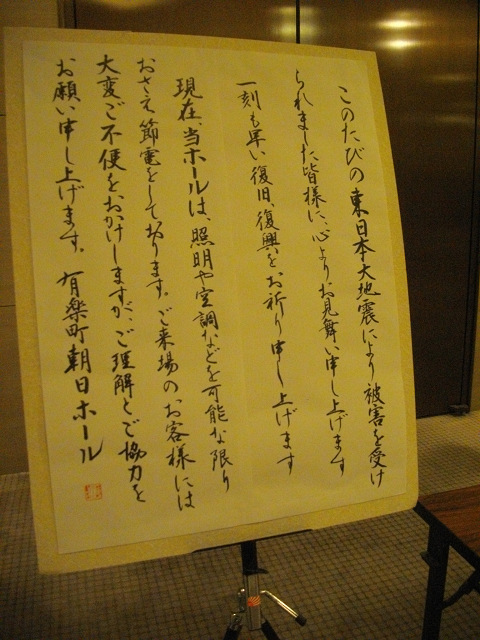 このたびの東日本大地震により被害を受け
られました皆様に、心よりお見舞い申し上げます
一刻も早い復旧、復興をお祈り申し上げます
現在、当ホールは、照明や空調などを可能な限り
おさえ節電をしております。ご来場のお客様には
大変ご不便をおかけしますが、ご理解とご協力を
お願い申し上げます。有楽町朝日ホール